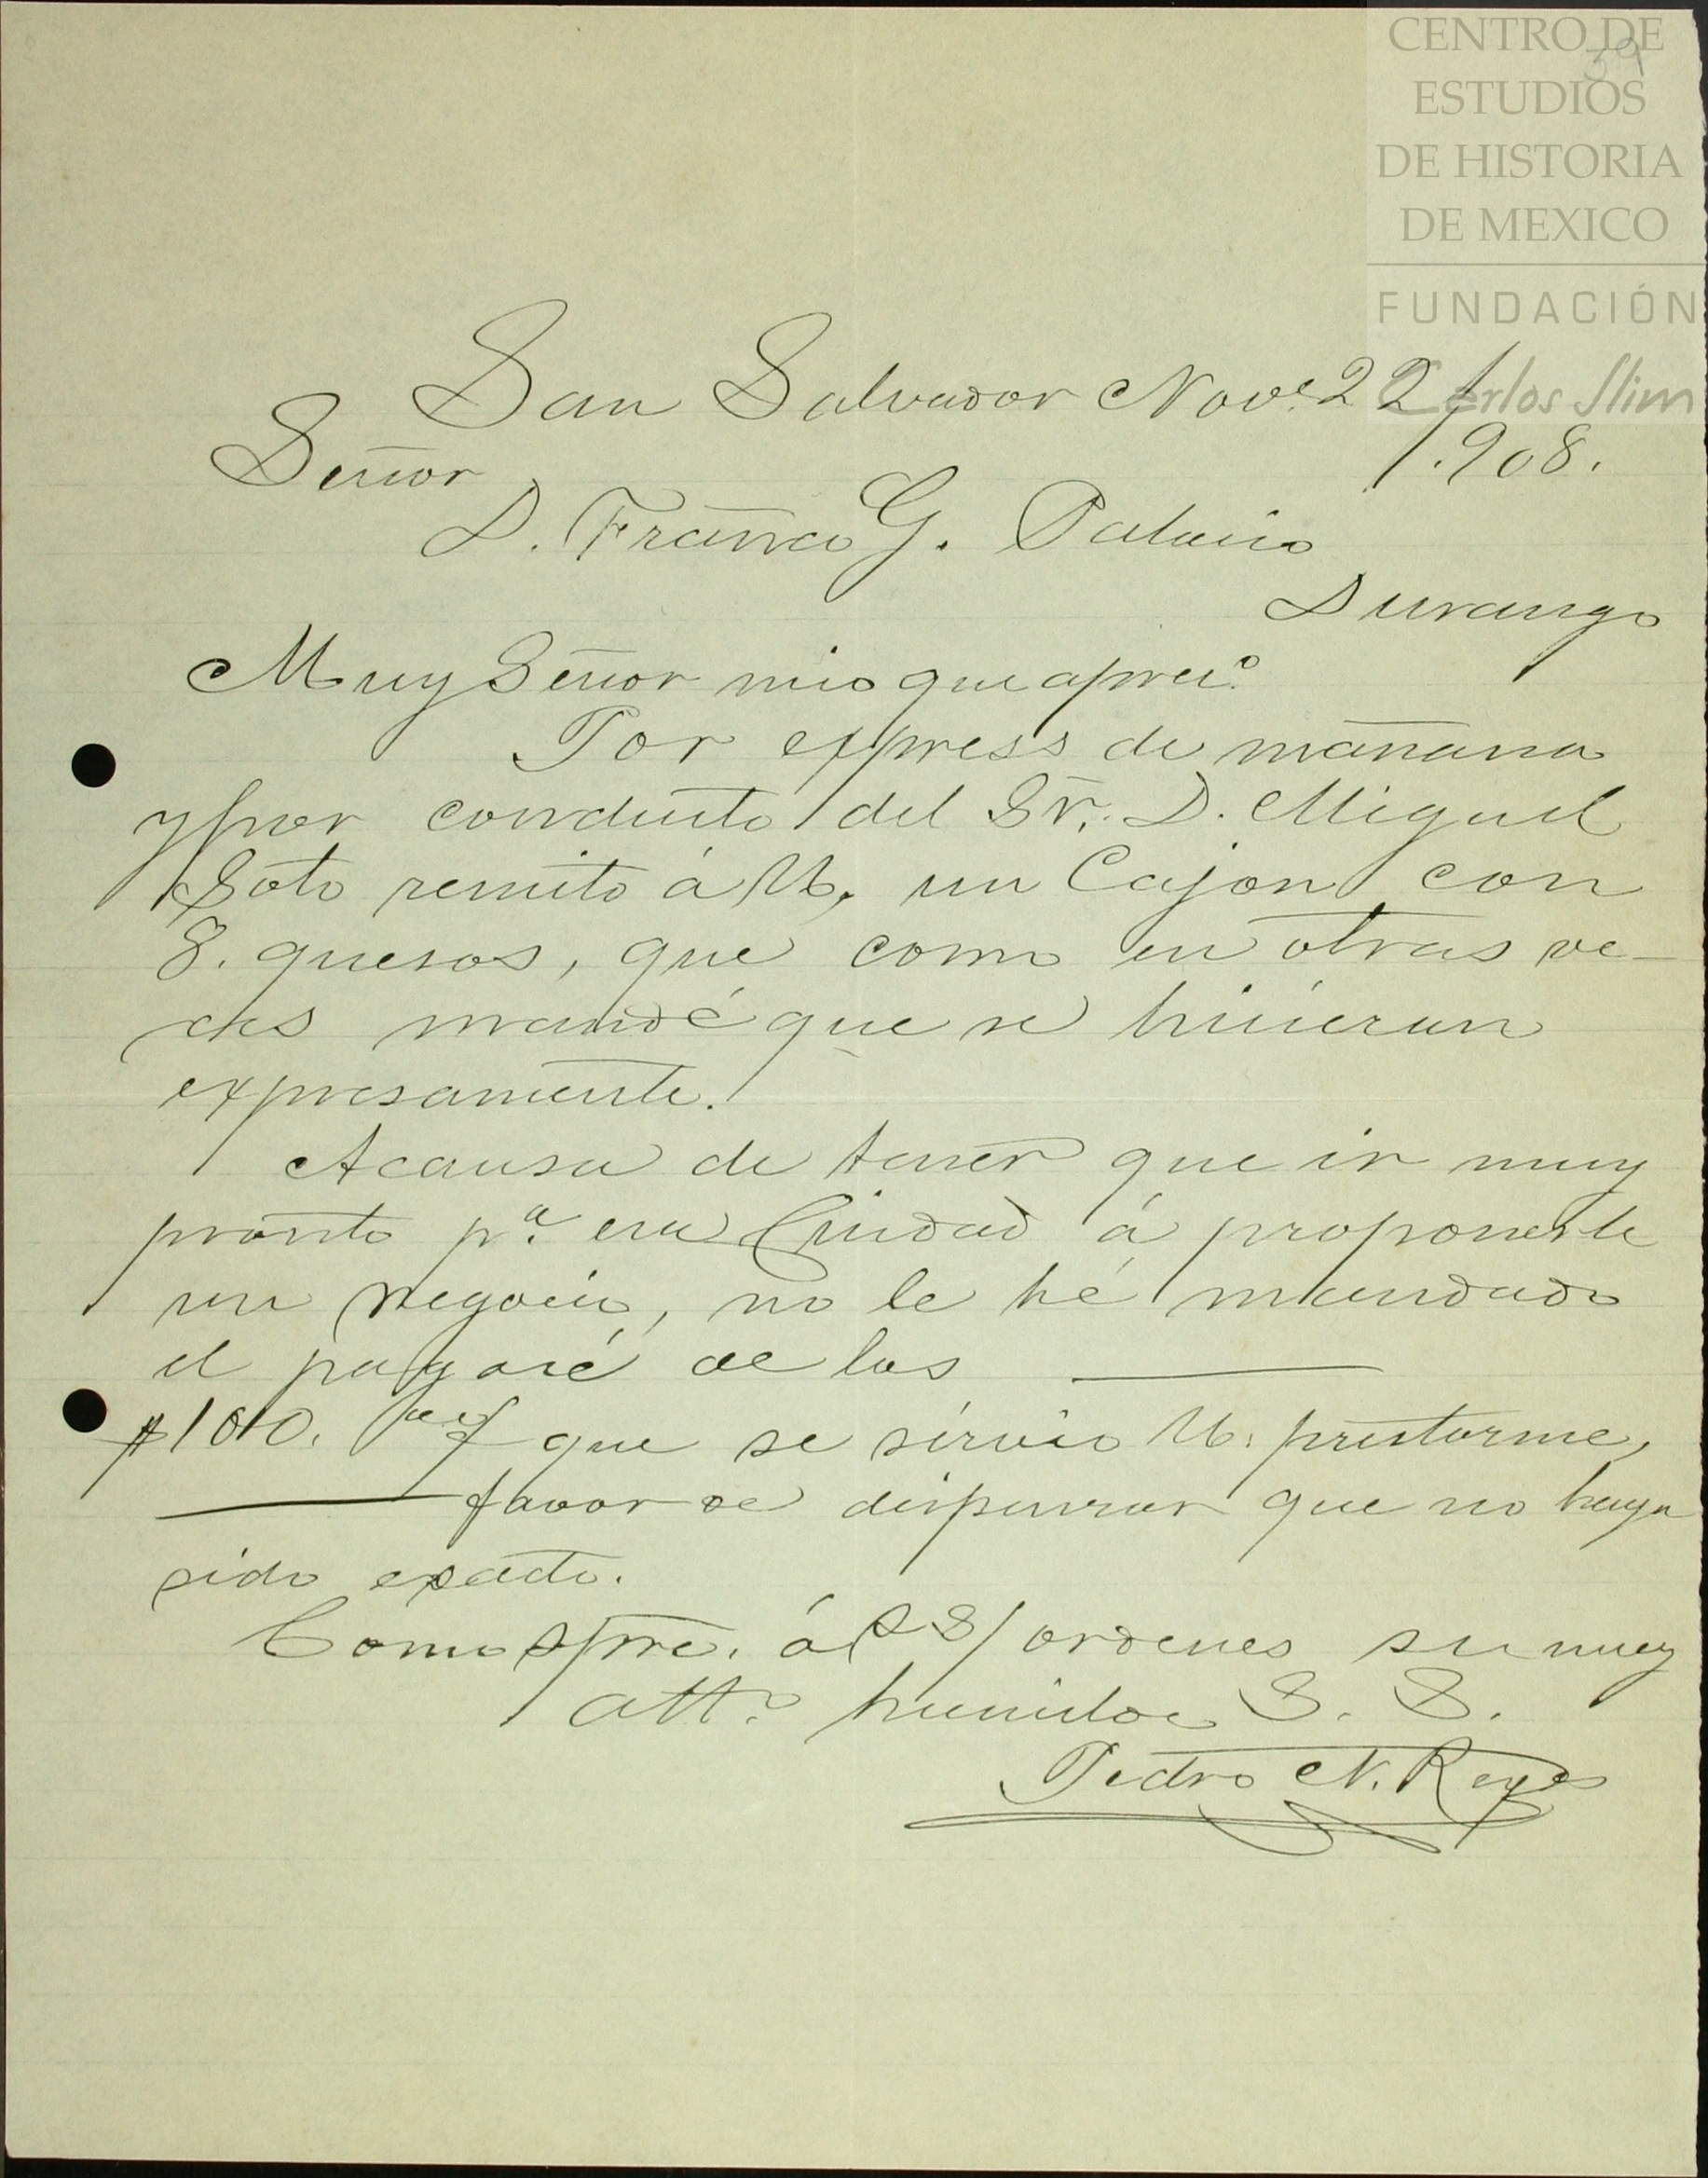 CENTRO DE
ESTUDIOS
DE HISTORIA
DE MEXICO
FUNDACIÓN
Carlos Slim
39
San Salvador Nove. 22/
1.908.
Señor
D. Franco G. Palacio
Durango
Muy Señor mio que apreco.
Por express de mañana
y por conducto del Sr. D. Miguel
Soto remito á U. un Cajon con
8. quesos, que como en otras ve-
ces mandé que se hicieran
expresamente.
A causa de tener que ir muy
pronto pa. esa Ciudad á proponerle
un negocio, no le hé mandado
el pagaré de los
$100. que se sirvio U. prestarme,
favor de dispensar que no haya
sido exacto.
Como spre. á SS/ ordenes su muy
atto. humilde S. S.
Pedro N. Reyes